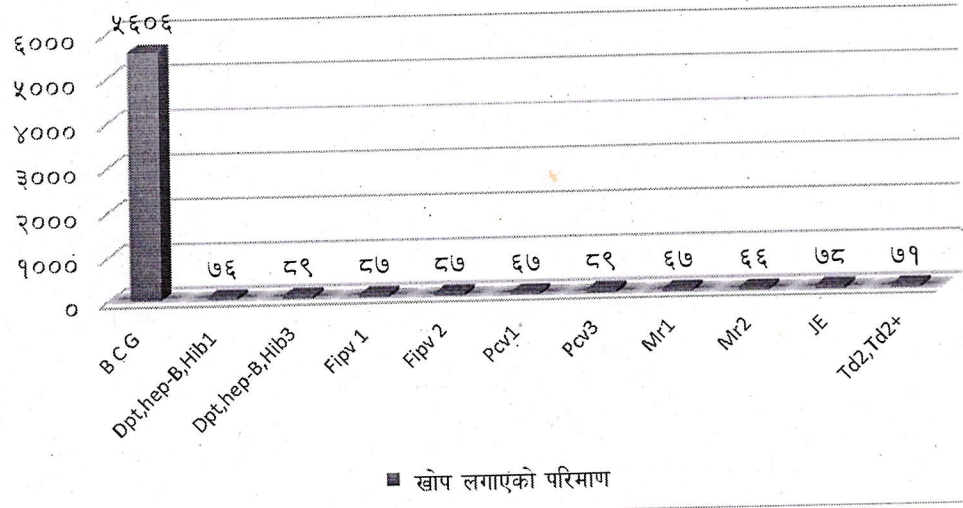 ५६०६
६०००
५०००
४०००
३०००
२०००
१०००
०
७६ ८९ ८७ ८७ ६७ ८९ ६७ ६६ ७८ ७१
B C G
Dpt,hep-B,Hib1
Dpt,hep-B,Hib3
Fipv 1
Fipv 2
Pcv1
Pcv3
Mr1
Mr2
JE
Td2,Td2+
खोप लगाएको परिमाण